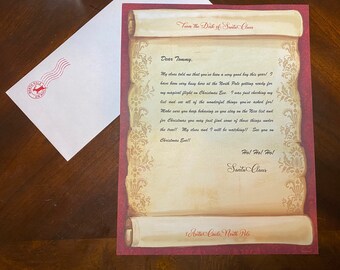 From the Desk of Santa Claus
Dear Tommy,
My elves told me that you've been a very good boy this year! I
have been very busy here at the North Pole getting ready for
my magical flight on Christmas Eve. I was just checking my
list and see all of the wonderful things you've asked for!
Make sure you keep behaving so you stay on the Nice list and
for Christmas you may just find some of those things under
the tree!! My elves and I will be watching!! See you on
Christmas Eve!!
Ho! Ho! Ho!
Santa Claus
North